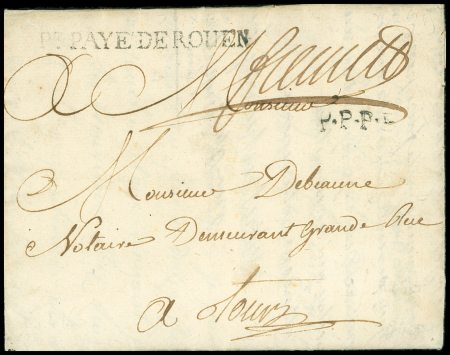 Pt PAYÉ DE ROUEN
A Monsieur
P.P.P.P
Monsieur Debeaune
Notaire Demeurant Grande Rüe
a Tours